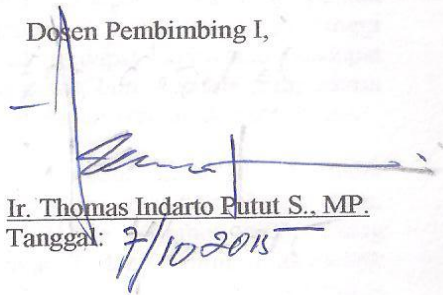 Dosen Pembimbing I,
Ir. Thomas Indarto Putut S., MP.
Tanggal: 7/10 2015